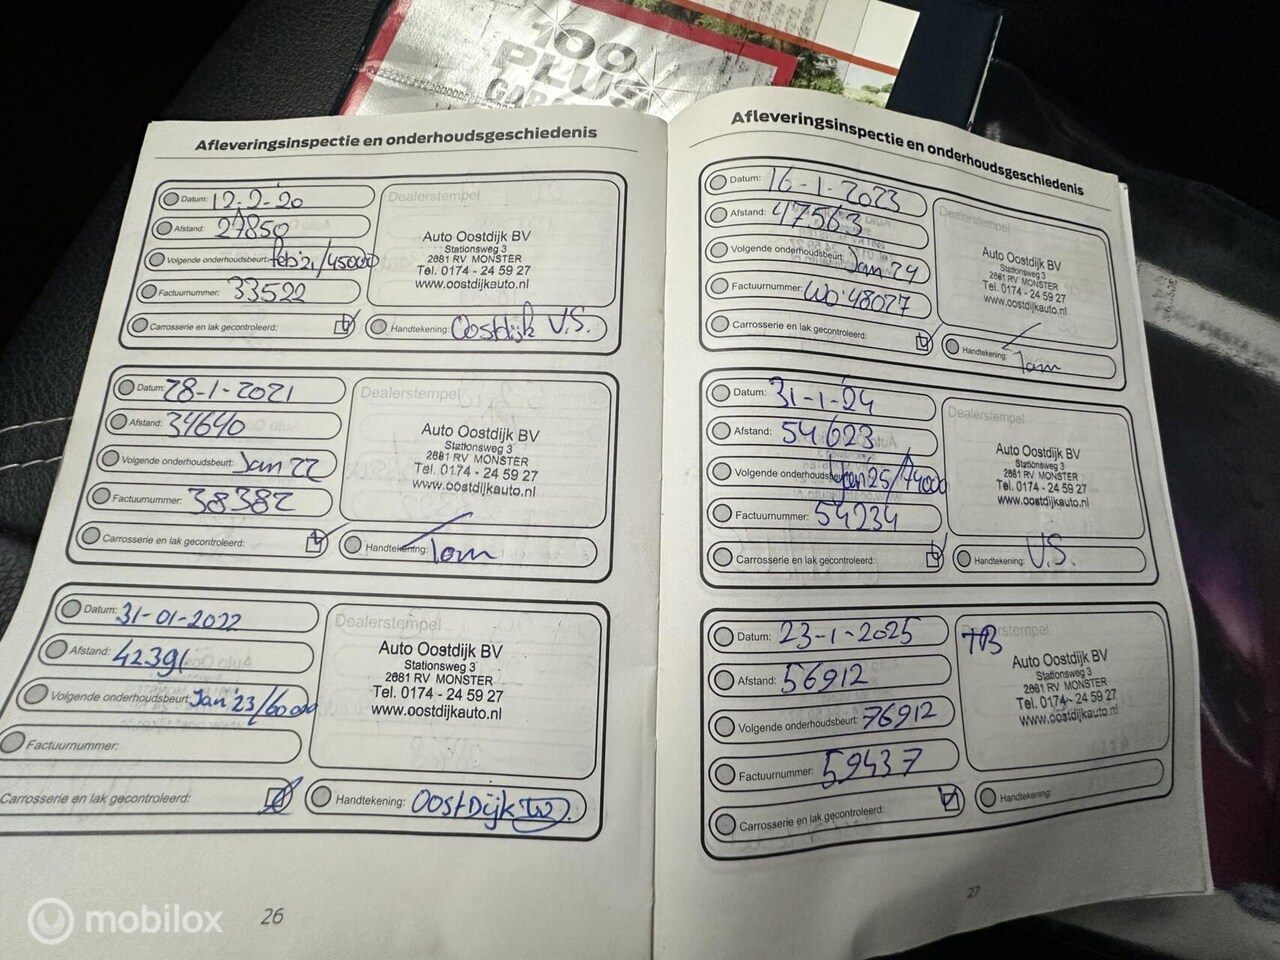 100
PLUS
Afleveringsinspectie en onderhoudsgeschiedenis
Datum: 12-2-'20
Afstand: 27850
Volgende onderhoudsbeurt: feb'21/45000
Factuurnummer: 33522
Carrosserie en lak gecontroleerd:
Dealerstempel
Auto Oostdijk BV
Stationsweg 3
2681 RV MONSTER
Tel. 0174 - 24 59 27
www.oostdijkauto.nl
Handtekening: Oostdijk V.S.
Datum: 28-1-2021
Afstand: 34640
Volgende onderhoudsbeurt: Jan 22
Factuurnummer: 38382
Carrosserie en lak gecontroleerd:
Dealerstempel
Auto Oostdijk BV
Stationsweg 3
2681 RV MONSTER
Tel. 0174 - 24 59 27
www.oostdijkauto.nl
Handtekening: Tom
Datum: 31-01-2022
Afstand: 42391
Volgende onderhoudsbeurt: Jan '23/60000
Factuurnummer:
Carrosserie en lak gecontroleerd:
Dealerstempel
Auto Oostdijk BV
Stationsweg 3
2681 RV MONSTER
Tel. 0174 - 24 59 27
www.oostdijkauto.nl
Handtekening: Oostdijk (W).
26
Afleveringsinspectie en onderhoudsgeschiedenis
Datum: 16-1-2023
Afstand: 47563
Volgende onderhoudsbeurt: Jan 24
Factuurnummer: Wo:48027
Carrosserie en lak gecontroleerd:
Dealerstempel
Auto Oostdijk BV
Stationsweg 3
2681 RV MONSTER
Tel. 0174 - 24 59 27
www.oostdijkauto.nl
Handtekening: Tom
Datum: 31-1-'24
Afstand: 54623
Volgende onderhoudsbeurt: Jan 25/74000
Factuurnummer: 54234
Carrosserie en lak gecontroleerd:
Dealerstempel
Auto Oostdijk BV
Stationsweg 3
2681 RV MONSTER
Tel. 0174 - 24 59 27
www.oostdijkauto.nl
Handtekening: V.S.
Datum: 23-1-2025
Afstand: 56912
Volgende onderhoudsbeurt: 76912
Factuurnummer: 59437
Carrosserie en lak gecontroleerd:
Dealerstempel
TB
Auto Oostdijk BV
Stationsweg 3
2681 RV MONSTER
Tel. 0174 - 24 59 27
www.oostdijkauto.nl
Handtekening:
27
mobilox